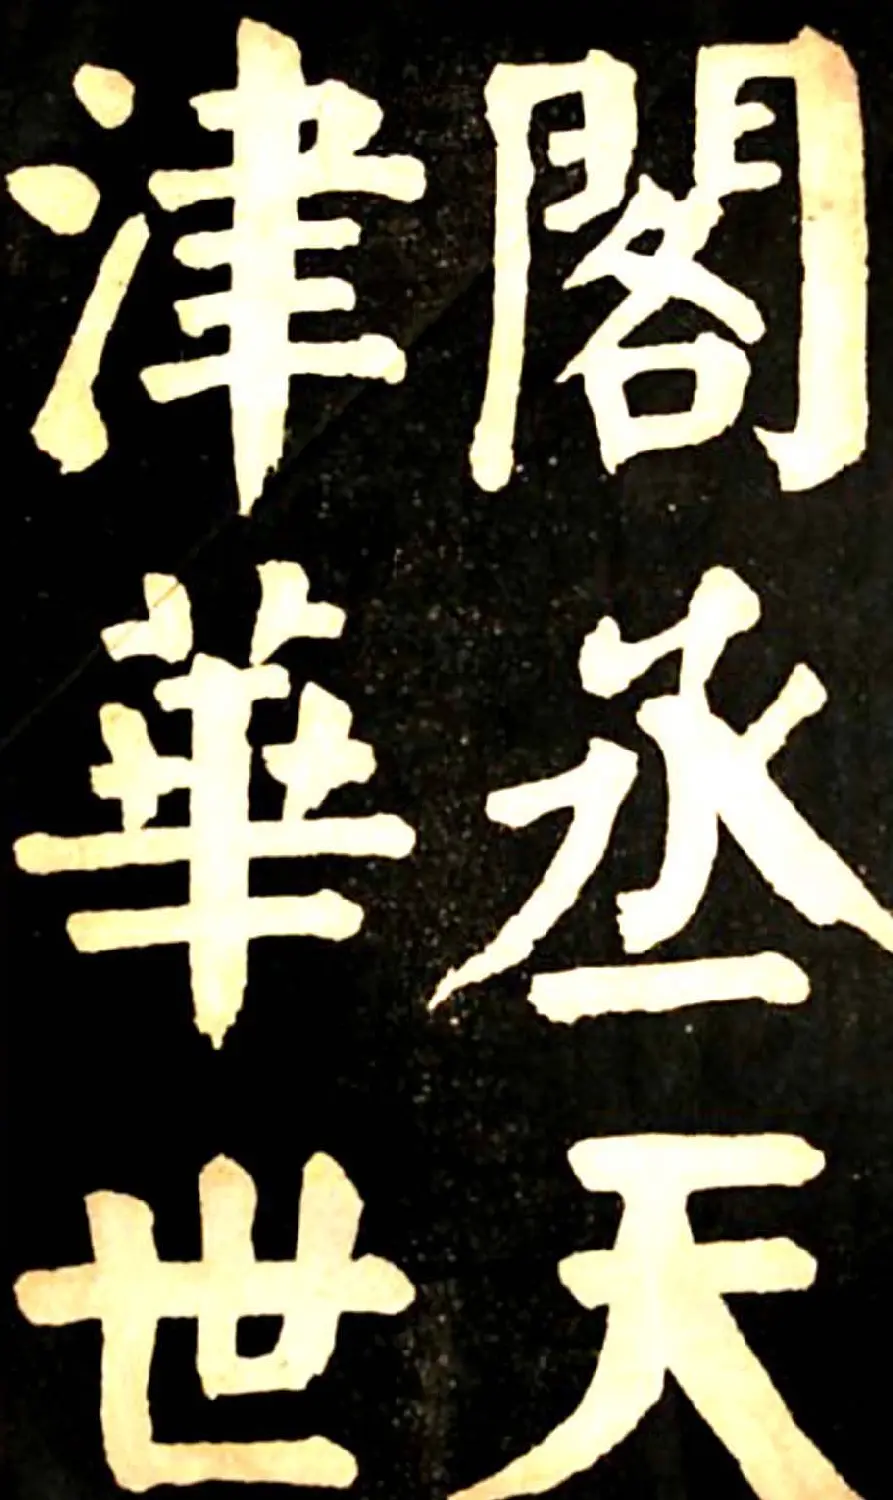 閣丞天
津華世